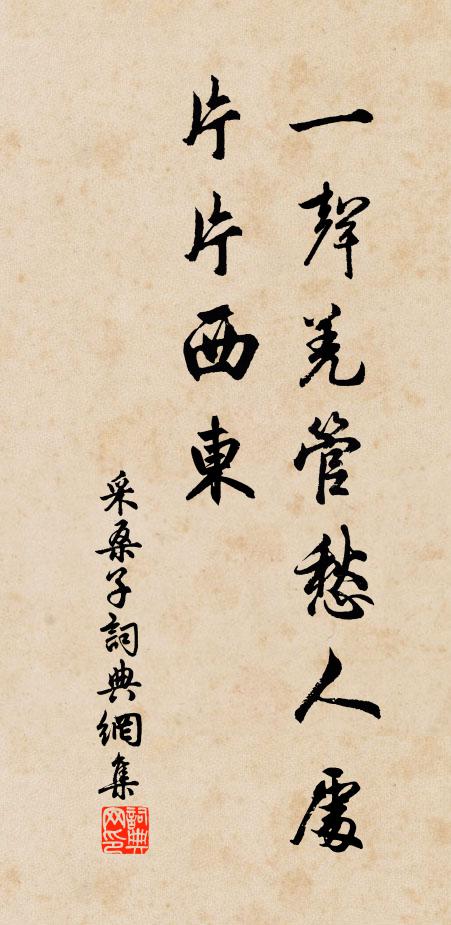 一聲羌管愁人處
片片西東
采桑子詞典網集
詞典网印